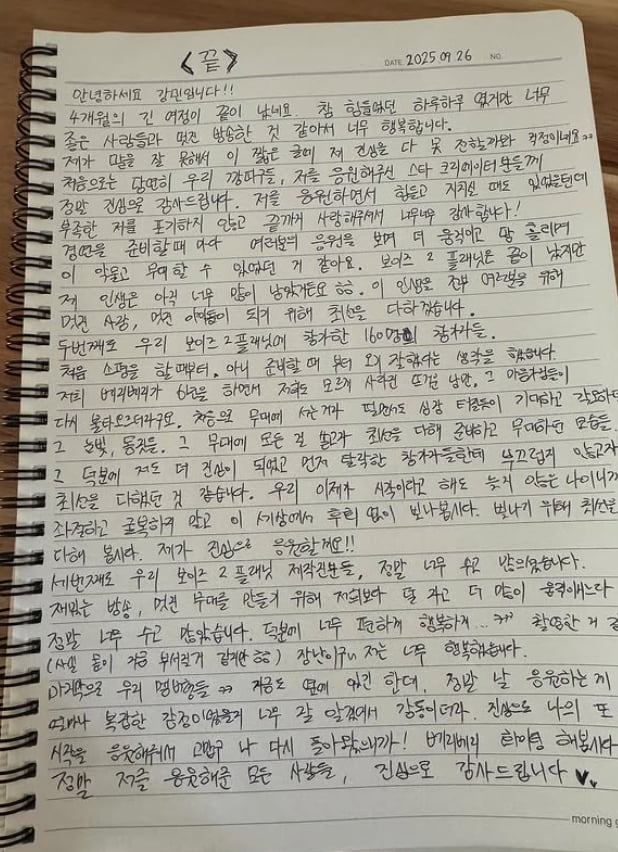 <끝>
DATE 2025 09 26 NO.
안녕하세요 강민입니다!!
4개월의 긴 여정이 끝이 났네요. 참 힘들었던 하루하루 였지만 너무
좋은 사람들과 멋진 방송한 것 같아서 너무 행복합니다.
제가 말을 잘 못해서 이 짧은 글에 제 진심을 다 못 전할까봐 걱정이네요ㅠㅠ
처음으로는 당연히 우리 깡파구들, 저를 응원해주신 스타 크리에이터분들께
정말 진심으로 감사드립니다. 저를 응원하면서 힘들고 지치실 때도 있었을텐데
부족한 저를 포기하지 않고 끝까지 사랑해주셔서 너무너무 감사합니다!
경연을 준비할 때 마다 여러분의 응원을 보며 더 움직이고 땀 흘리며
이 악물고 무대할 수 있었던 거 같아요. 보이즈 2 플래닛은 끝이 났지만
저 인생은 아직 너무 많이 남았거든요 ㅎㅎ. 이 인생을 전부 여러분을 위해
멋진 사람, 멋진 아이돌이 되기 위해 최선을 다하겠습니다.
두번째로 우리 보이즈 2 플래닛에 참가한 160명의 참가자들.
처음 쇼핑을 할 때부터. 아니 준비할 때 부터 오길 잘했다는 생각을 했습니다.
저희 베리베리가 6년을 하면서 저희도 모르게 사라진 뜨거운 낭만. 그 마음가짐이
다시 불타오르더라구요. 처음으로 무대에 서는거라 떨면서도 심장 터질듯이 기대하고 각오하던
그 눈빛, 몸짓들. 그 무대에 모든 걸 쏟고자 최선을 다해 준비하고 무대하던 모습들.
그 덕분에 저도 더 진심이 되었고 먼저 탈락한 참가자들한테 부끄럽지 않고자
최선을 다했던 것 같습니다. 우리 이제가 시작이라고 해도 늦지 않은 나이니까
좌절하고 굴복하지 말고 이 세상에서 후회 없이 보내봅시다. 빛나기 위해 최선을
다해 봅시다. 제가 진심으로 응원할게요!!
세번째로 우리 보이즈 2 플래닛 제작진분들, 정말 너무 수고 많으셨습니다.
재밌는 방송, 멋진 무대를 만들기 위해 저희보다 덜 자고 더 많이 움직이느라
정말 너무 수고 많았습니다. 덕분에 너무 편하게 행복하게... ㅠㅠ 촬영한 거 같
(사실 몸이 가끔 부서질거 같지만 ㅎㅎ) 장난이구 저는 너무 행복했습니다.
마지막으로 우리 멤버형들 ㅠㅠ 지금도 옆에 있긴 한데, 정말 날 응원하는 게
얼마나 복잡한 감정이었을지 너무 잘 알겠어서 감동이더라. 진심으로 나의 또
시작을 응원해줘서 고맙구 나 다시 돌아왔으니까! 베리베리 화이팅 해봅시다
정말 저를 응원해준 모든 사람들, 진심으로 감사드립니다 ♥♥
morning g